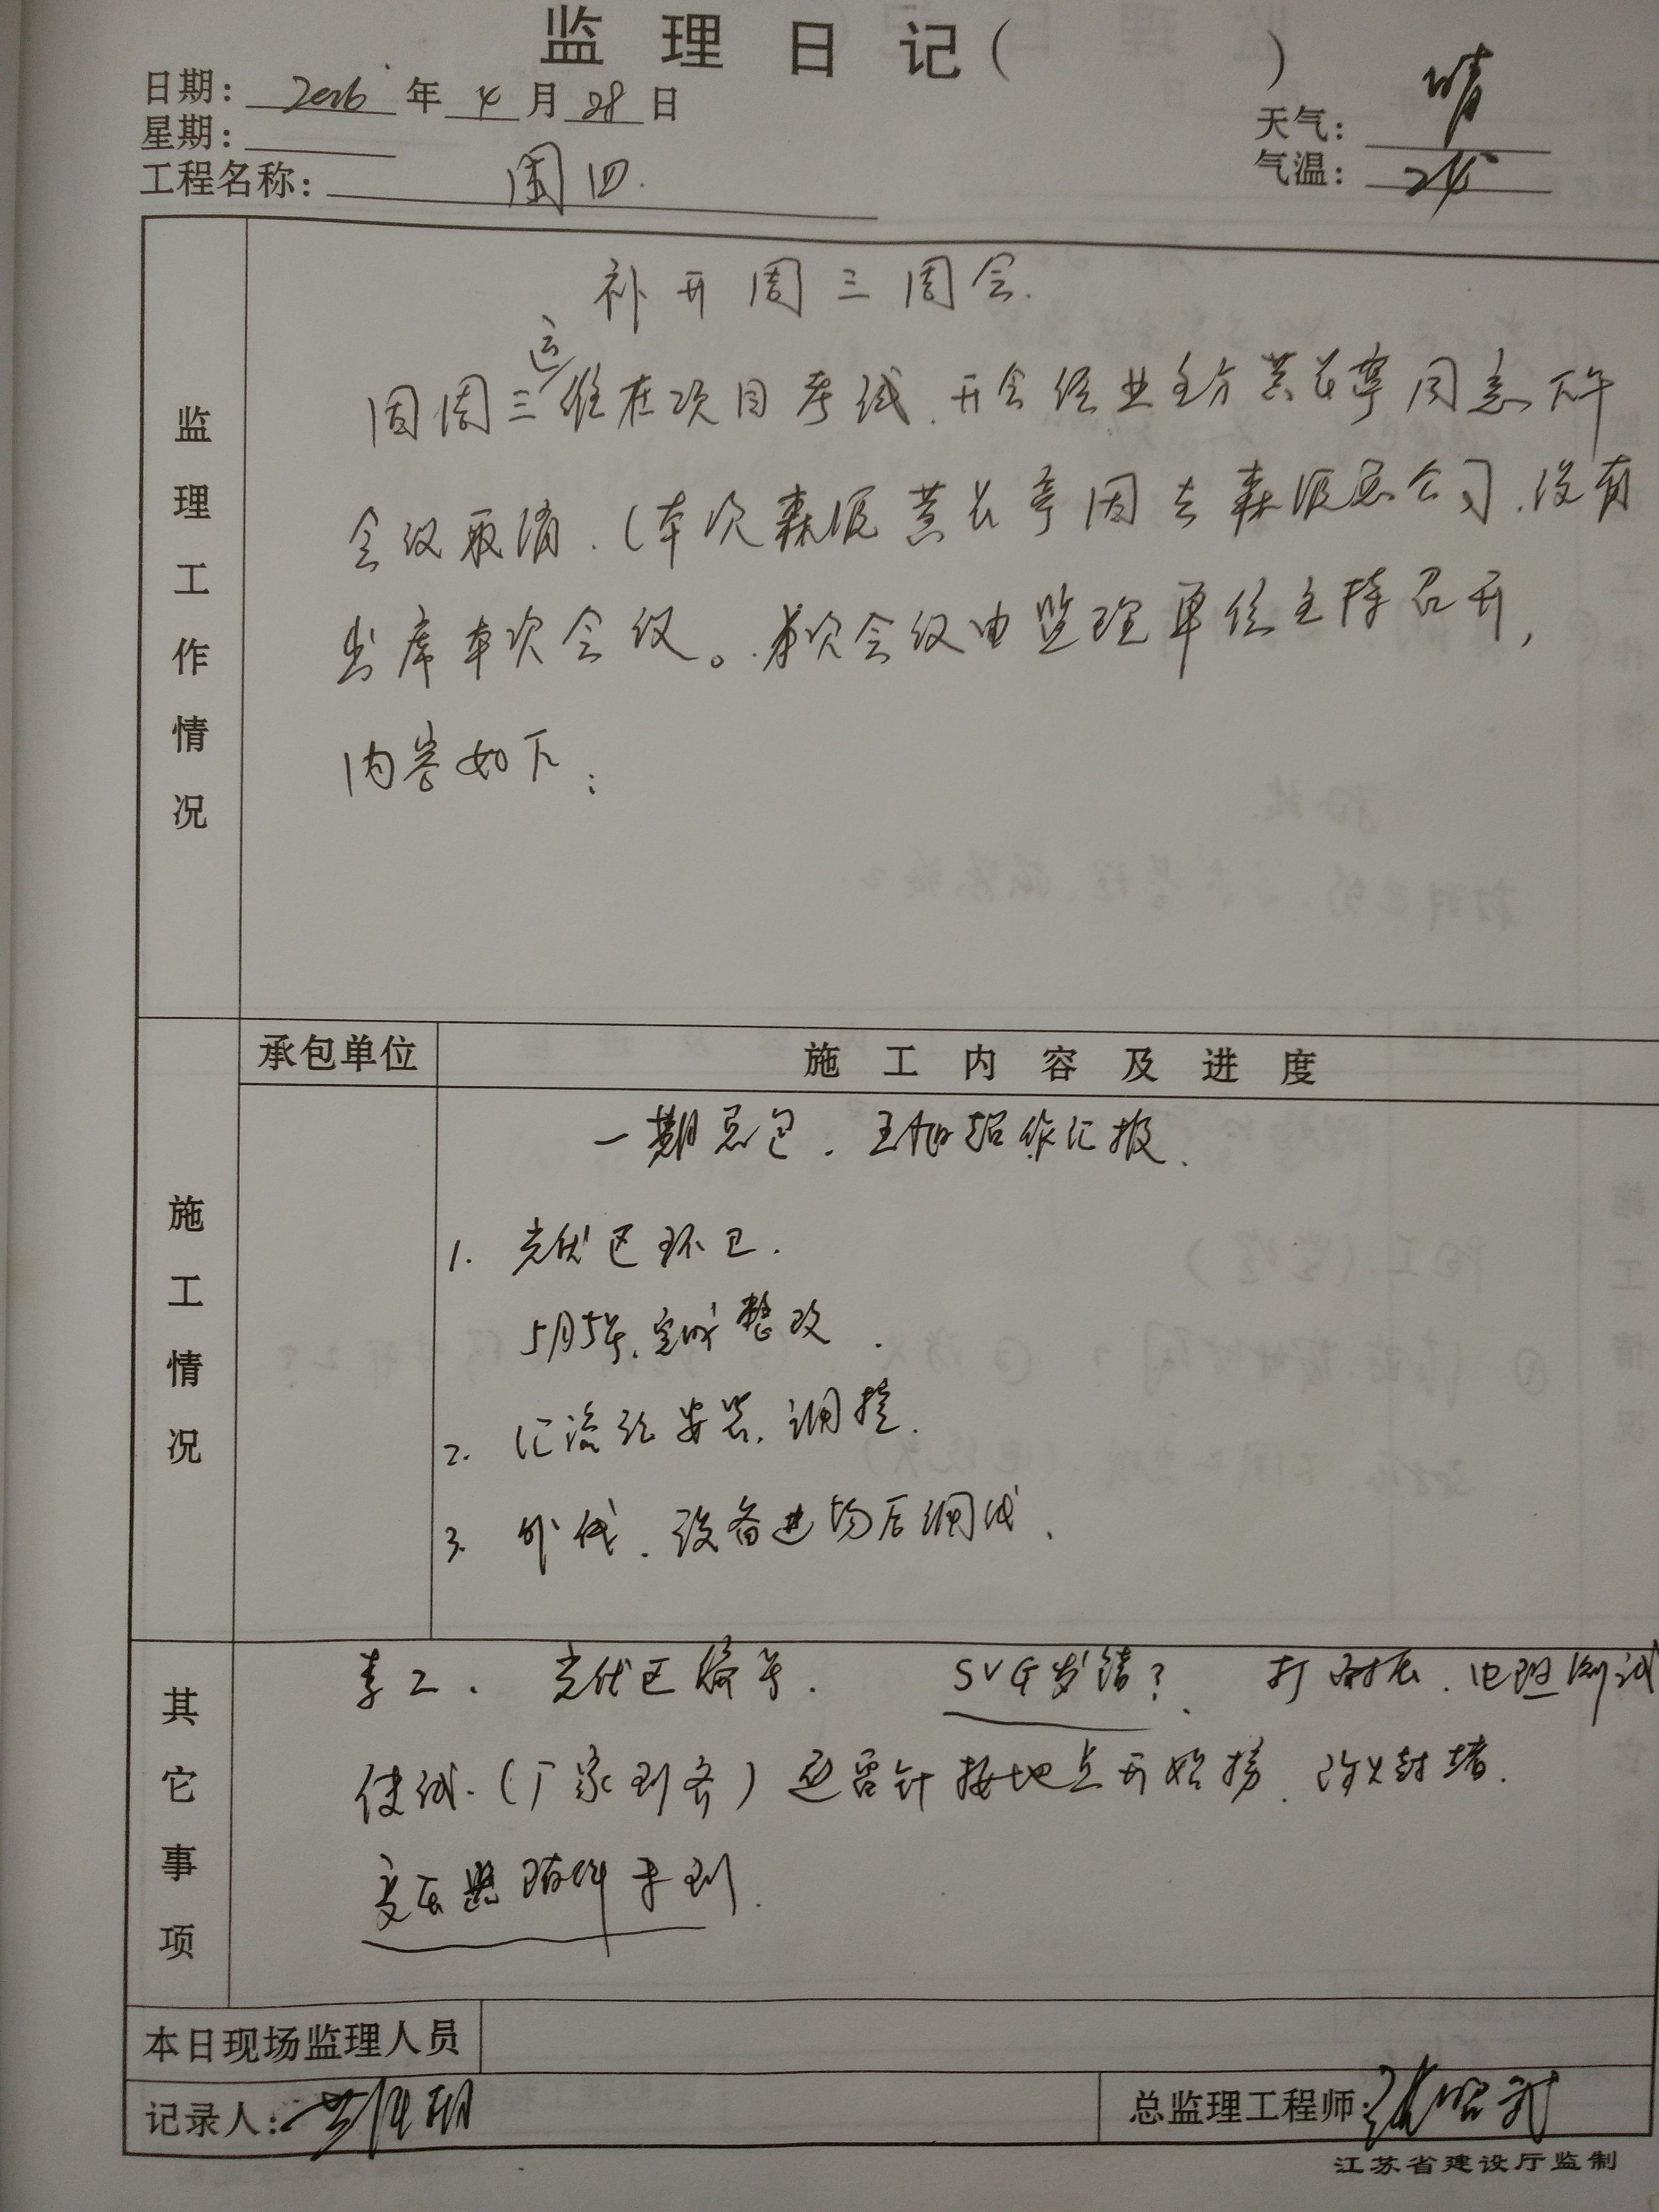 监理日记( )
日期: 2016 年 4 月 28 日
星期:
天气: 晴
工程名称: 周四.
气温: 24°
监理工作情况
补开周三周会.
因周三运维在项目考试.开会经业主方黄长亭同志下午
会议取消.(本次森源黄长亭因去森源总公司.没有
出席本次会议。本次会议由监理单位主持召开,
内容如下:
承包单位
施工内容及进度
施工情况
一期总包.王旭超作汇报.
1. 光伏区环卫.
5月5号.完成整改.
2. 汇流箱安装.调整.
3. 外线.设备进场后调试.
其它事项
李工. 光伏区编号. SVG发错? 打耐压.电阻测试
使试.(厂家到齐) 避雷针接地点开始接.防火封堵.
变压器附件未到.
本日现场监理人员
记录人:
总监理工程师:
江苏省建设厅监制